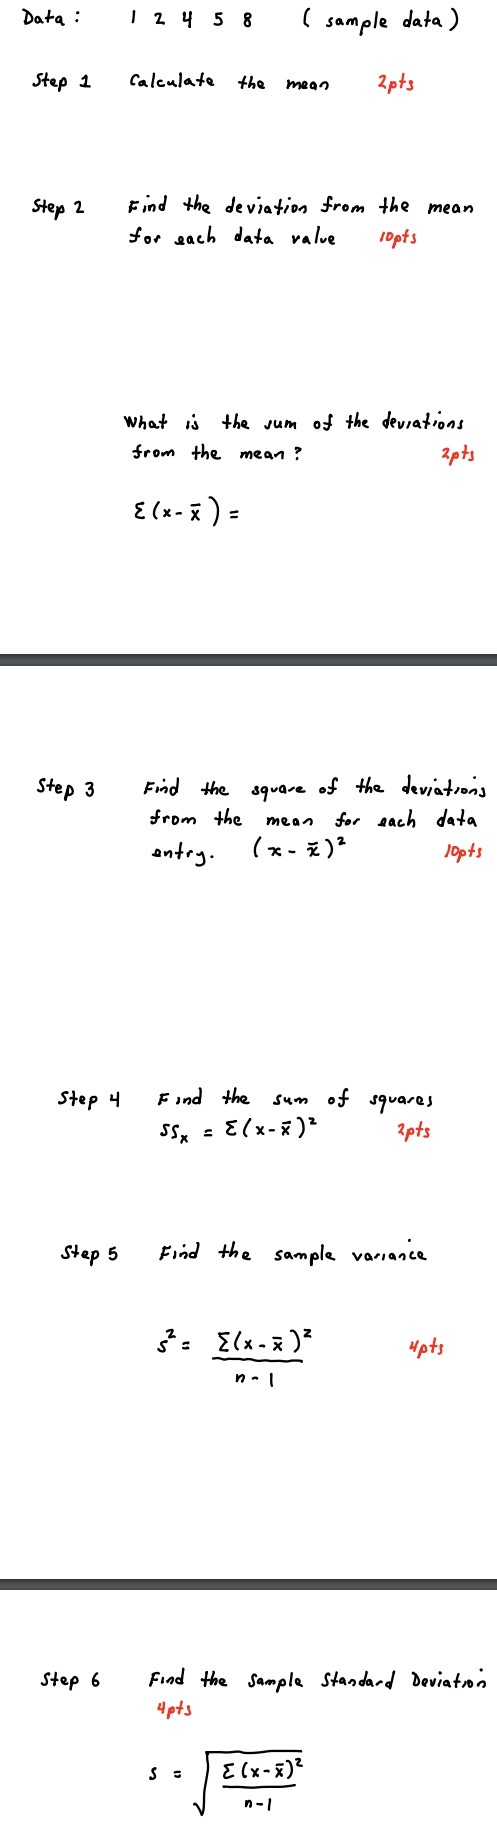 Data : 1 2 4 5 8 ( sample data )
Step 1 Calculate the mean 2pts
Step 2 Find the deviation from the mean
for each data value 10pts
What is the sum of the deviations
from the mean ? 2pts
Σ(x - x̄) =
Step 3 Find the square of the deviations
from the mean for each data
entry. (x - x̄)² 10pts
Step 4 Find the sum of squares
SSₓ = Σ(x - x̄)² 2pts
Step 5 Find the sample variance
s² = Σ(x - x̄)² 4pts
n - 1
Step 6 Find the Sample Standard Deviation
4pts
s = √ Σ(x - x̄)²
n - 1